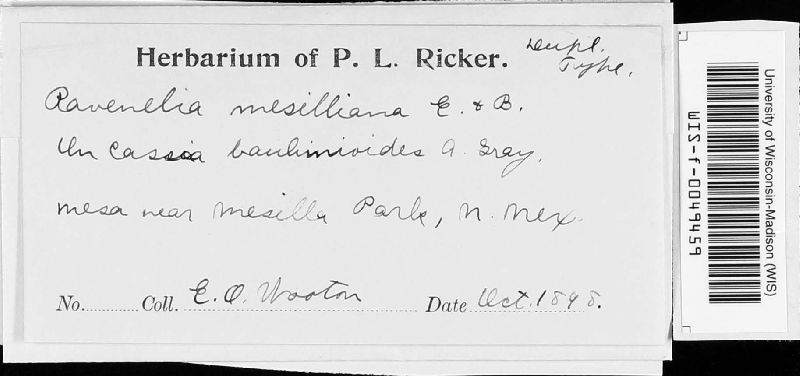 Herbarium of P. L. Ricker.
Dupl.
Type.
Ravenelia mesilliana E. & B.
On Cassia bauhinioides A. Gray.
mesa near Mesilla Park, N. Mex.
No. Coll. E. O. Wooton Date Oct. 1898.
University of Wisconsin-Madison (WIS)
WIS-f-0049459